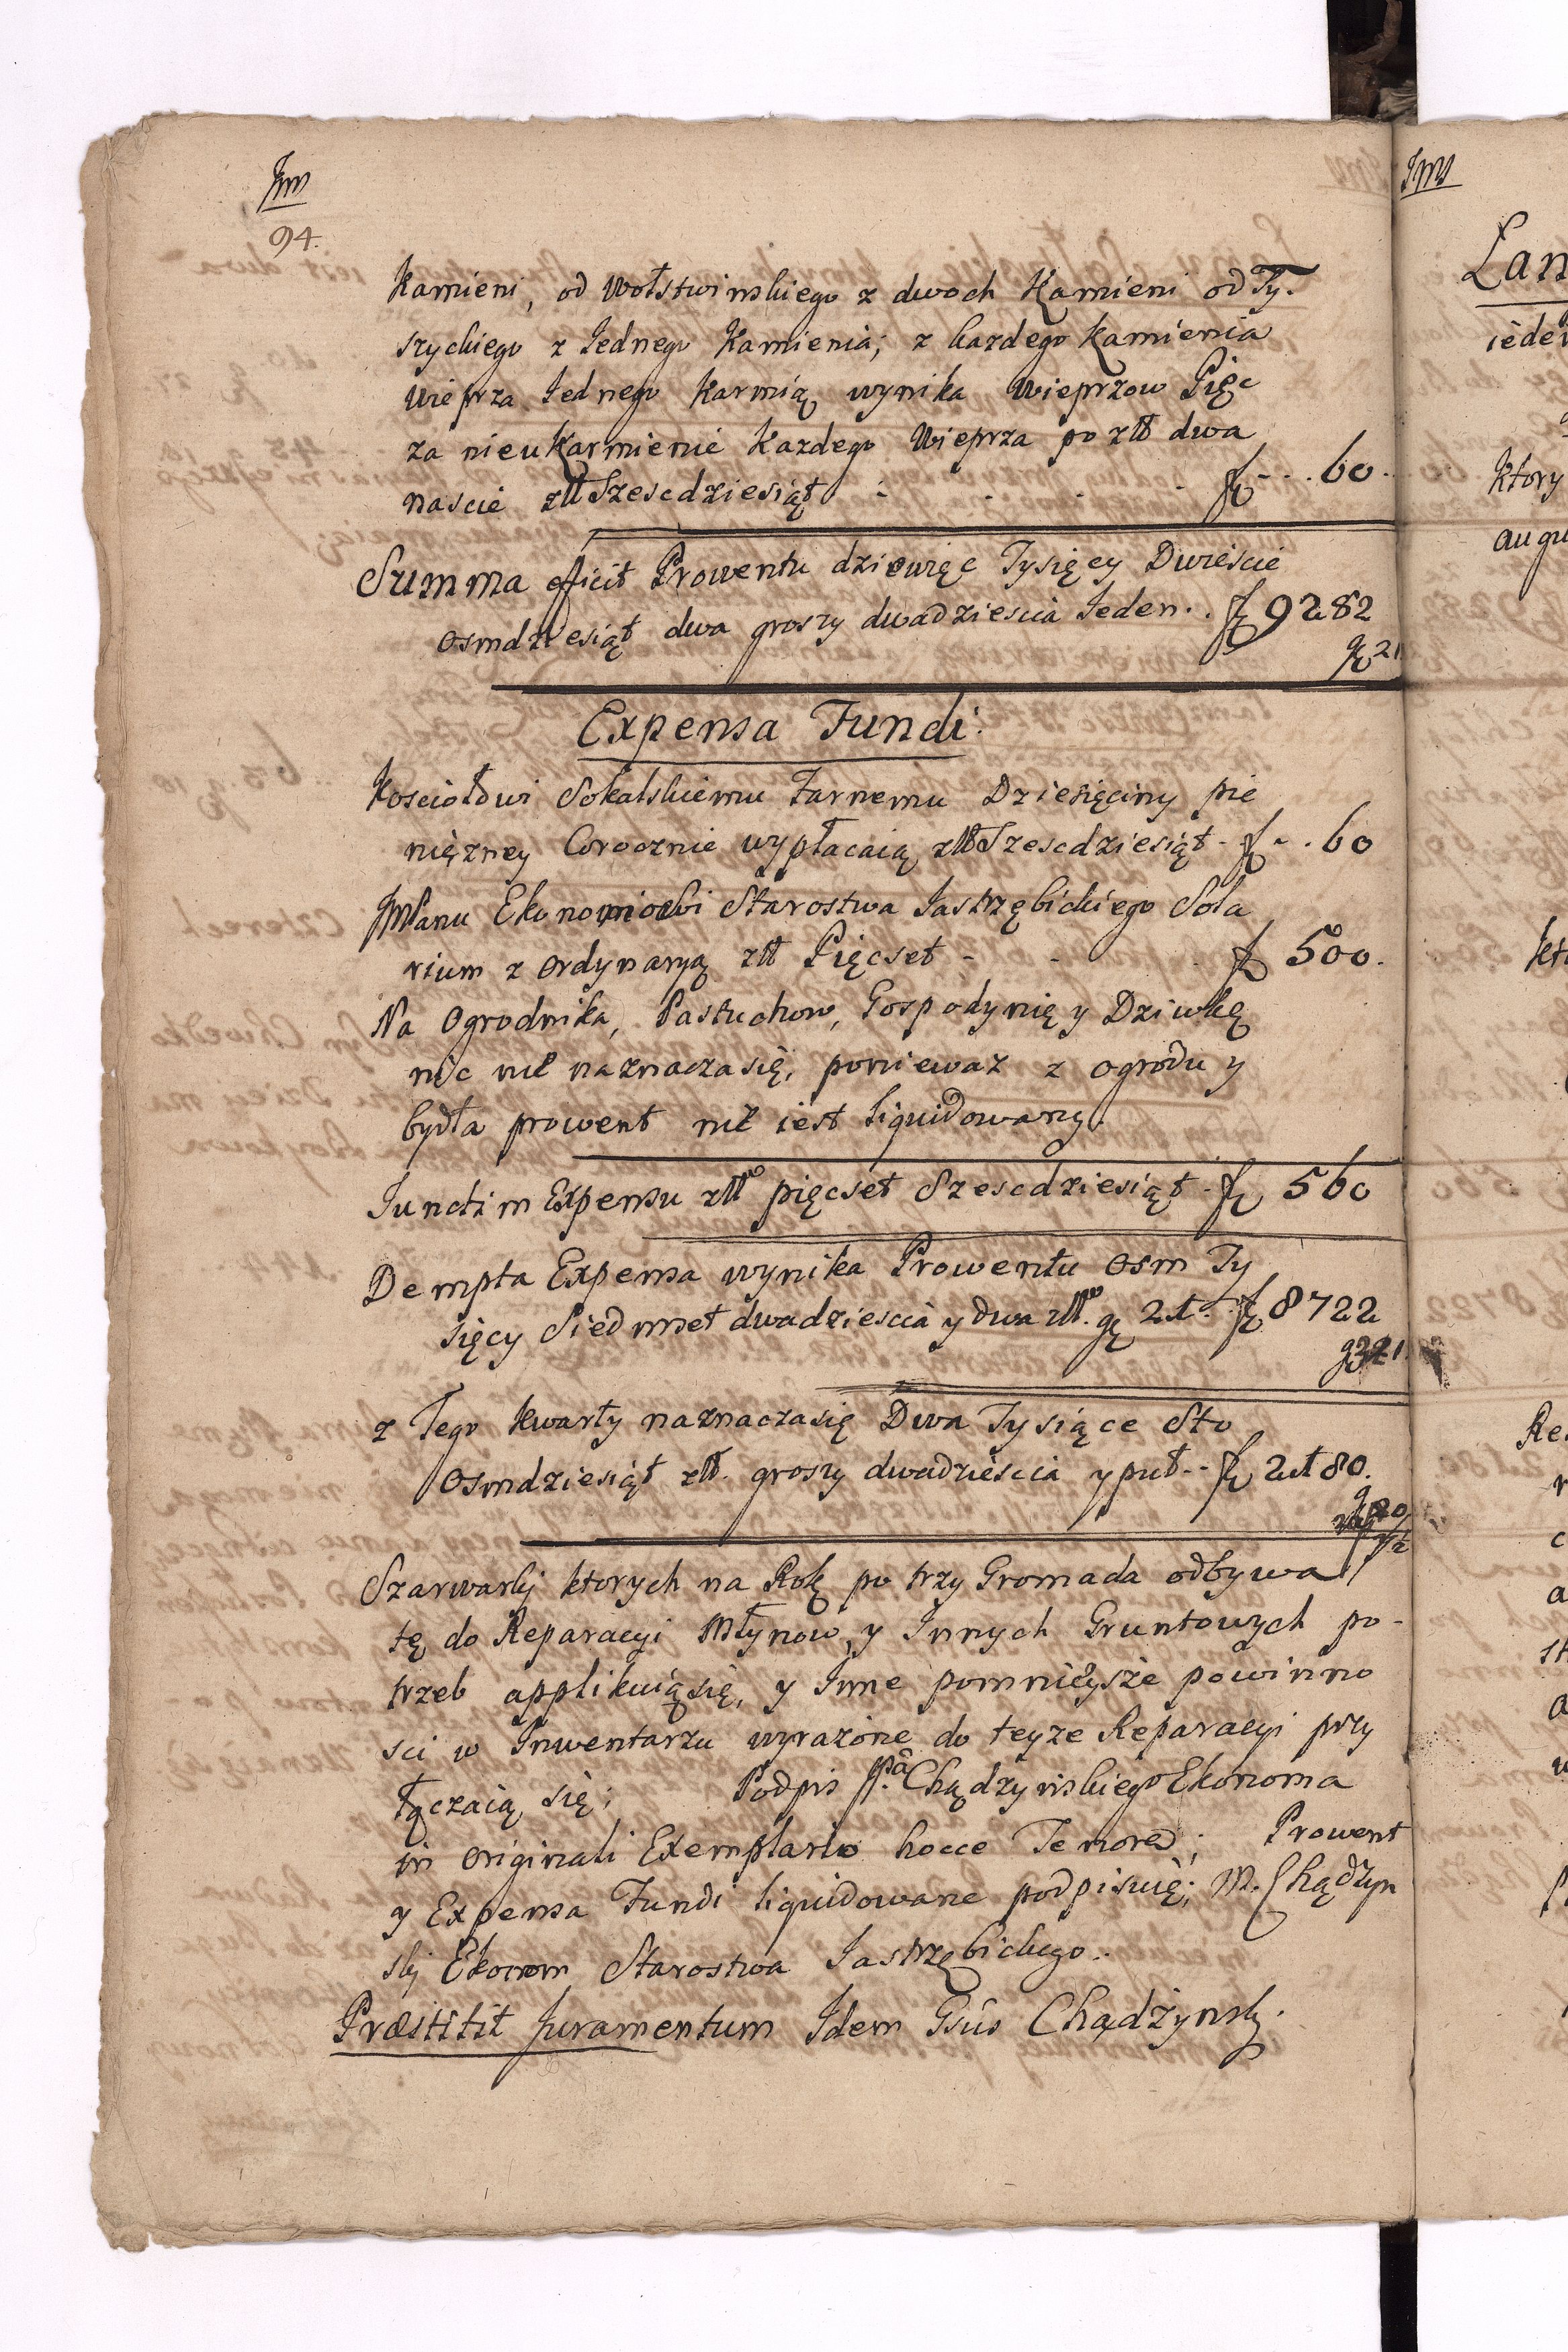 Jms
94.
Kamieni, od Wołstwinskiego z dwoch Kamieni od Ty-
szyckiego z Iednego Kamienia; z kazdego Kamienia
Wieprza Iednego Karmią wynika Wieprzow Pięc
za nieukarmienie Kazdego Wieprza po złł dwa
nascie złł Szescdziesiąt - - - - fl - - . 60.
Summa efficit Prowentu dziewięc Tysięcy Dwiescie
osmdziesiąt dwa groszy dwadziescia Ieden. . fl 9282
gr 21.
Expensa Fundi.
Kosciołowi Sokalskiemu Farnemu Dziesięciny pie
nięzney Corocznie wypłacaią złł Szescdziesiąt - fl - . 60
JmPanu Ekonomowi Starostwa Iastrzębickiego Sola
rium z ordynaryą złł Pięcset - - - fl 500.
Na Ogrodnika, Pastuchow, Gospodynię y Dziwkę
nic nie naznacza się, poniewaz z ogrodu y
bydła prowent nie iest liquidowany.
Iunctim Expensu złł pięcset Szescdziesiąt - fl 560
Dempta Expensa wynika Prowentu Osm Ty
sięcy Siedmset dwadziescia y dwa złł. gr 21. fl 8722
gr 21.
z Tego kwarty naznacza się Dwa Tysiące Sto
Osmdziesiąt złł. groszy dwadziescia y puł - - fl 2180.
gr 20
1/2
Szarwarki ktorych na Rok po trzy Gromada odbywa
tę do Reparacyi Młynow, y Innych Gruntowych po-
trzeb applikuią się, y Inne pomnieysze powinno
sci w Inwentarzu wyrazone do teyze Reparacyi przy
łączaią się; Podpis Pa Chądzynskiego Ekonoma
in originali Exemplario hocce Tenore; Prowent
y Expensa Fundi liquidowane podpisuię; M. Chądzyn
ski Ekonom Starostwa Iastrzębickiego.
Præstitit Juramentum Idem Gsus Chądżynsky.
Jms
Lan
ieden
ktory
augu